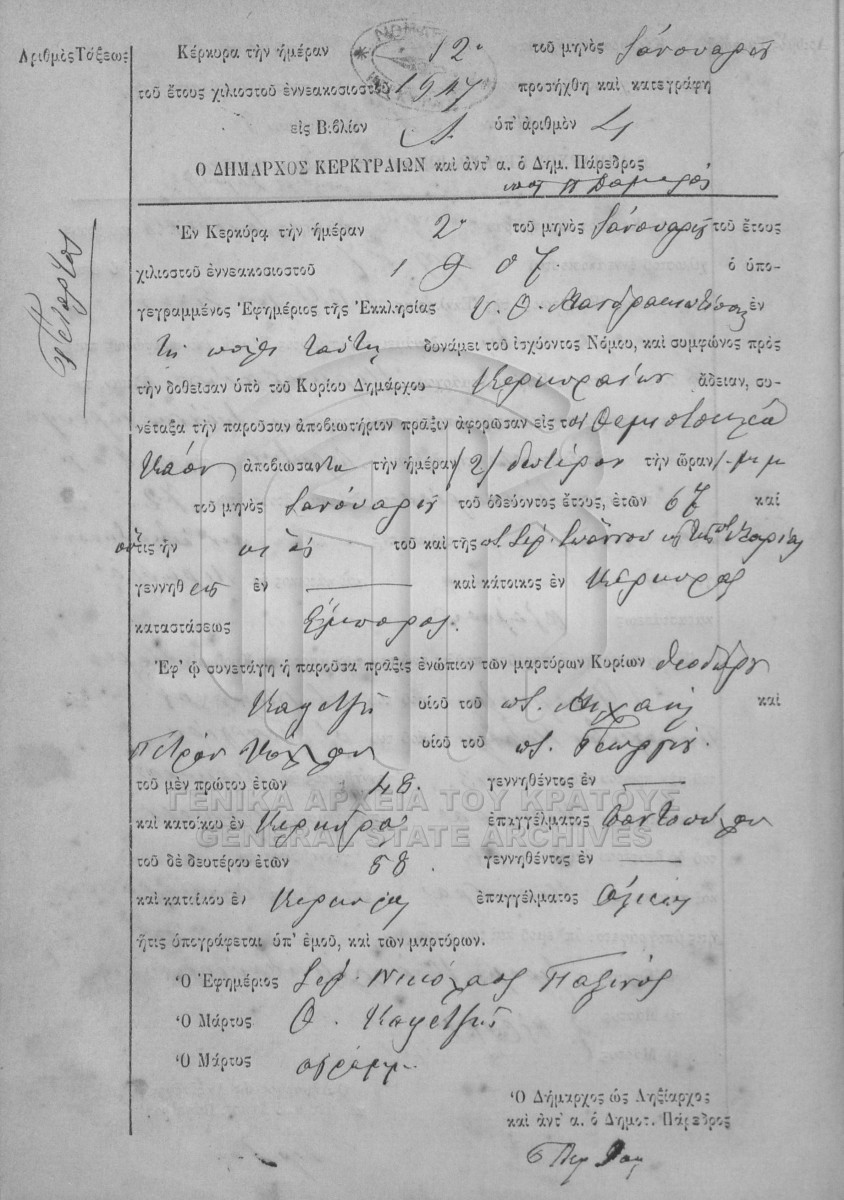 Ἀριθμὸς Τάξεως
Κέρκυρα τὴν ἡμέραν 12 τοῦ μηνὸς Ἰανουαρίου
τοῦ ἔτους χιλιοστοῦ ἐννεακοσιοστοῦ 1907 προσήχθη καὶ κατεγράφη
εἰς Βιβλίον Α. ὑπ' ἀριθμὸν 4
Ο ΔΗΜΑΡΧΟΣ ΚΕΡΚΥΡΑΙΩΝ καὶ ἀντ' α. ὁ Δημ. Πάρεδρος
Τέταρτος
Ἐν Κερκύρᾳ τὴν ἡμέραν 2α τοῦ μηνὸς Ἰανουαρίου τοῦ ἔτους
χιλιοστοῦ ἐννεακοσιοστοῦ 1907. ὁ ὑπο-
γεγραμμένος Ἐφημέριος τῆς Ἐκκλησίας Υ. Θ. Μανδρακιωτίσσης ἐν
τῇ πόλει ταύτῃ δυνάμει τοῦ ἰσχύοντος Νόμου, καὶ συμφώνως πρὸς
τὴν δοθεῖσαν ὑπὸ τοῦ Κυρίου Δημάρχου Κερκυραίων ἄδειαν, συ-
νέταξα τὴν παροῦσαν ἀποβιωτήριον πρᾶξιν ἀφορῶσαν εἰς τὸν Θεμιστοκλέα
ἀποβιώσαντα τὴν ἡμέραν /2/ δευτέραν τὴν ὥραν
τοῦ μηνὸς Ἰανουαρίου τοῦ ὁδεύοντος ἔτους, ἐτῶν 67 καὶ
ὅστις ἦν υἱὸς τοῦ καὶ τῆς π. Σερ. Ἰωάννου
γεννηθεὶς ἐν — καὶ κάτοικος ἐν Κέρκυρας
καταστάσεως Ἔμπορος.
Ἐφ' ᾧ συνετάγη ἡ παροῦσα πρᾶξις ἐνώπιον τῶν μαρτύρων Κυρίων Θεοδώρου
Καφετζῆ υἱοῦ τοῦ ποτ. Μιχαὴλ καὶ
Πέτρου υἱοῦ τοῦ ποτ. Γεωργίου.
τοῦ μὲν πρώτου ἐτῶν 48 γεννηθέντος ἐν —
καὶ κατοίκου ἐν Κερκύρᾳ ἐπαγγέλματος Παντοπώλου
τοῦ δὲ δευτέρου ἐτῶν 58 γεννηθέντος ἐν —
καὶ κατοίκου ἐν Κερκύρᾳ ἐπαγγέλματος
ἥτις ὑπογράφεται ὑπ' ἐμοῦ, καὶ τῶν μαρτύρων.
Ὁ Ἐφημέριος Σερ. Νικόλαος Παξινός
Ὁ Μάρτυς Θ. Καφετζῆς
Ὁ Μάρτυς
Ὁ Δήμαρχος ὡς Ληξίαρχος
καὶ ἀντ' α. ὁ Δημοτ. Πάρεδρος
ΓΕΝΙΚΑ ΑΡΧΕΙΑ ΤΟΥ ΚΡΑΤΟΥΣ
GENERAL STATE ARCHIVES